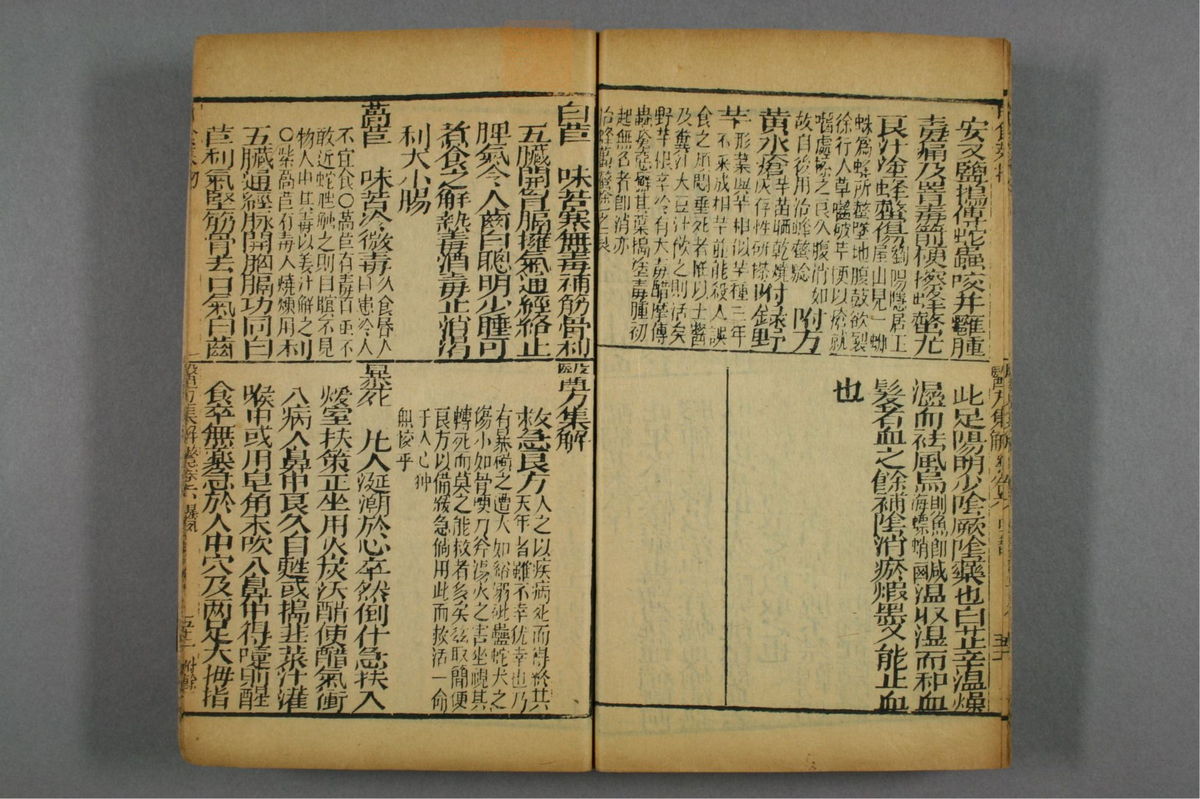 安又鹽搗傅蛇蟲咬并癰腫
毒痛及罯毒箭梗擦塗蜂螫尤
良汁塗蜂螫傷劉暘隱居王
屋山見一蜘
蛛為蜂所螫墜地腹鼓欲裂
徐行入草嚙破芋梗以瘡就
嚙處磨之良久腹消如
故自後用治蜂螫驗 附方
黃水瘡芋苗晒乾燒
灰存性研搽附錄野
芋形葉與芋相似芋種三年
不采成梠芋並能殺人誤
食之煩悶垂死者惟以土漿
及糞汁大豆汁飲之則活矣
野芋根辛冷有大毒醋摩傅
蟲瘡惡癬其葉搗塗毒腫初
起無名者即消亦
治蜂蠆螫塗之良
此足陽明少陰厥陰藥也白芷辛溫燥
濕而祛風烏賊魚即
海螵蛸鹹溫收濕而和血
髮者血之餘補陰消瘀煅墨又能止血
也
白苣 味苦寒無毒補筋骨利
五臟開胷膈擁氣通經絡止
脾氣令人齒白聰明少腫可
煮食之解熱毒酒毒止消渴
利大小腸
萵苣 味苦冷微毒久食昏人
目患冷人
不宜食○萵苣有毒百虫不
敢近蛇虺觸之則目瞑不見
物人中其毒以姜汁解之
○紫萵苣有毒入燒煉用利
五臟通經脉開胸膈功同白
苣利氣堅筋骨去口氣白齒
醫方集解
救急良方人之以疾病死而得於其
天年者雖不幸犹幸也乃
有暴橫之遭夭如縊溺砒蠱蛇犬之
傷小如骨哽刀斧湯火之害坐視其
轉死而莫之能救者多矣兹取簡便
良方以備緩急倘用此而捄活一命
于人心神
暴死 凡人涎潮於心卒然倒仆急扶入
煖室扶策正坐用火炭沃醋使醋氣衝
入病人鼻中良久自甦或搗韭菜汁灌
喉中或用皂角末吹入鼻中得嚏則醒
食卒無藥急於人中穴及两足大拇指